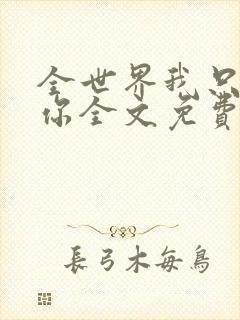 全世界我只
你全文免費
長弓木每鳥